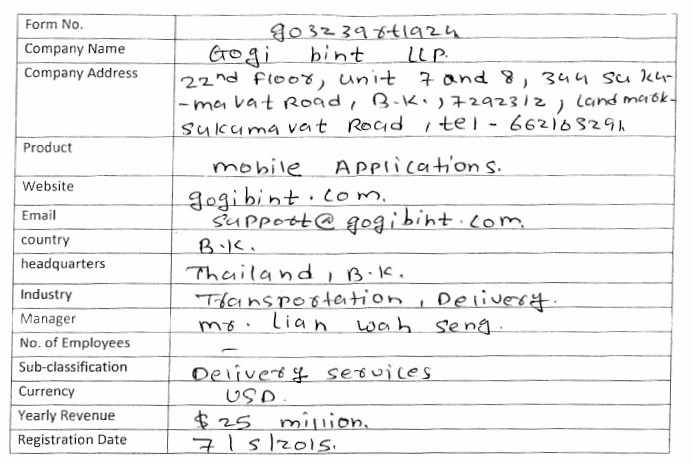 Form No. go3239rt1924
Company Name Gogi bint LLP.
Company Address 22nd Floor, unit 7 and 8, 344 Suku-
-mavat Road, B.K., 7292312, Landmark-
Sukumavat Road, tel - 662163294
Product mobile Applications.
Website gogibint.com.
Email support@gogibint.com.
country B.K.
headquarters Thailand, B.K.
Industry Transportation, Delivery.
Manager mr. Liah wah seng.
No. of Employees –
Sub-classification Delivery services
Currency USD.
Yearly Revenue $25 million.
Registration Date 7/5/2015.